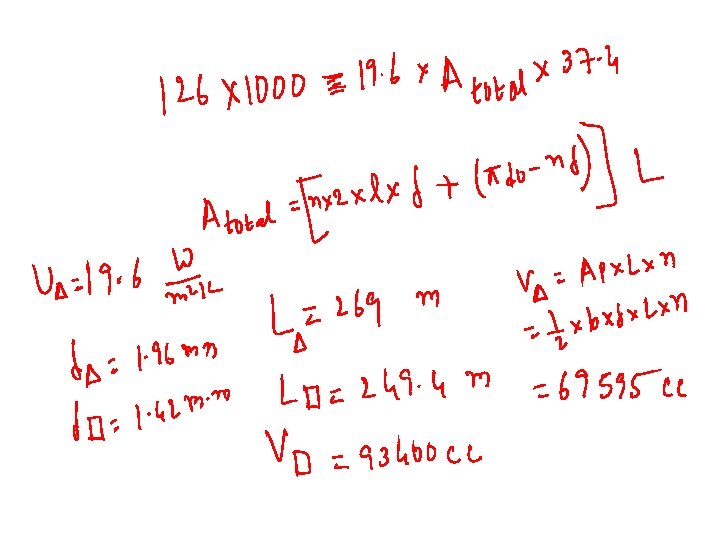 126 × 1000 = 19.6 × A total × 37.4
A total = [n×2×l×δ + (πdo - nδ)] L
U∆ = 19.6 W/m²K
δ∆ = 1.96 mm
δ□ = 1.42 m.m
L∆ = 269 m
L□ = 249.4 m
V□ = 93400 cc
V∆ = AP×L×n
= 1/2 × b×δ×L×n
= 69595 cc